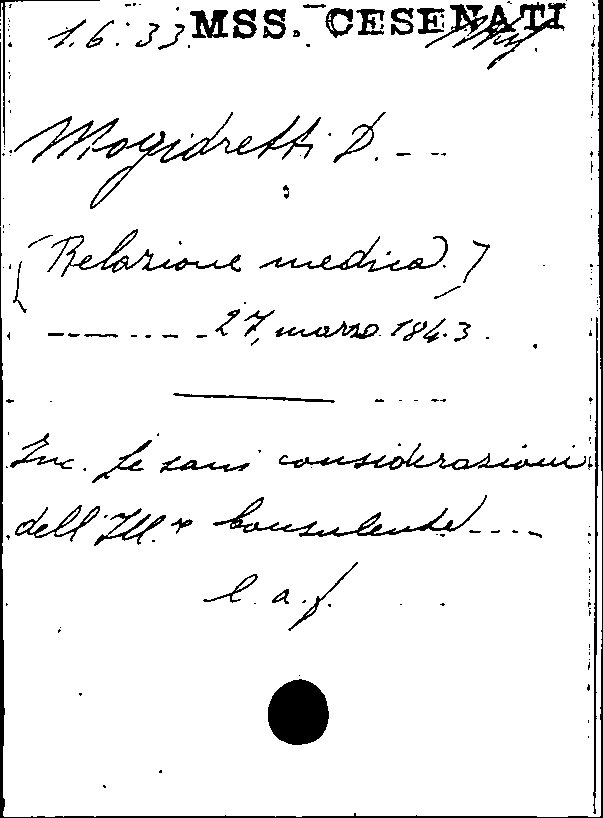 1.6.33. MSS. CESENATI
Mogidretti D. ---
:
[Relazione medica.]
-------- 27, marzo 1843.
Inc. Le sani considerazioni
dell'Ill.e Consulente ----
C. a. f.